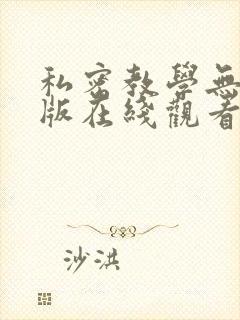 私密教學無
版在綫觀看
沙洪